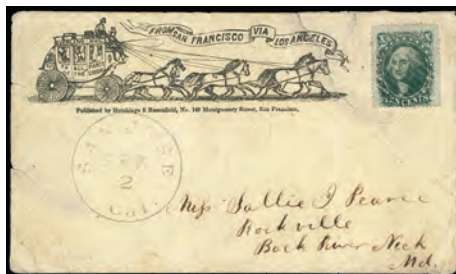 FROM SAN FRANCISCO VIA LOS ANGELES
Published by Hutchings & Rosenfield, No. 146 Montgomery Street, San Francisco.
SAN JOSE
2
Cal.
Miss Sallie J Pearce
Rockville
Back River Neck
Md.